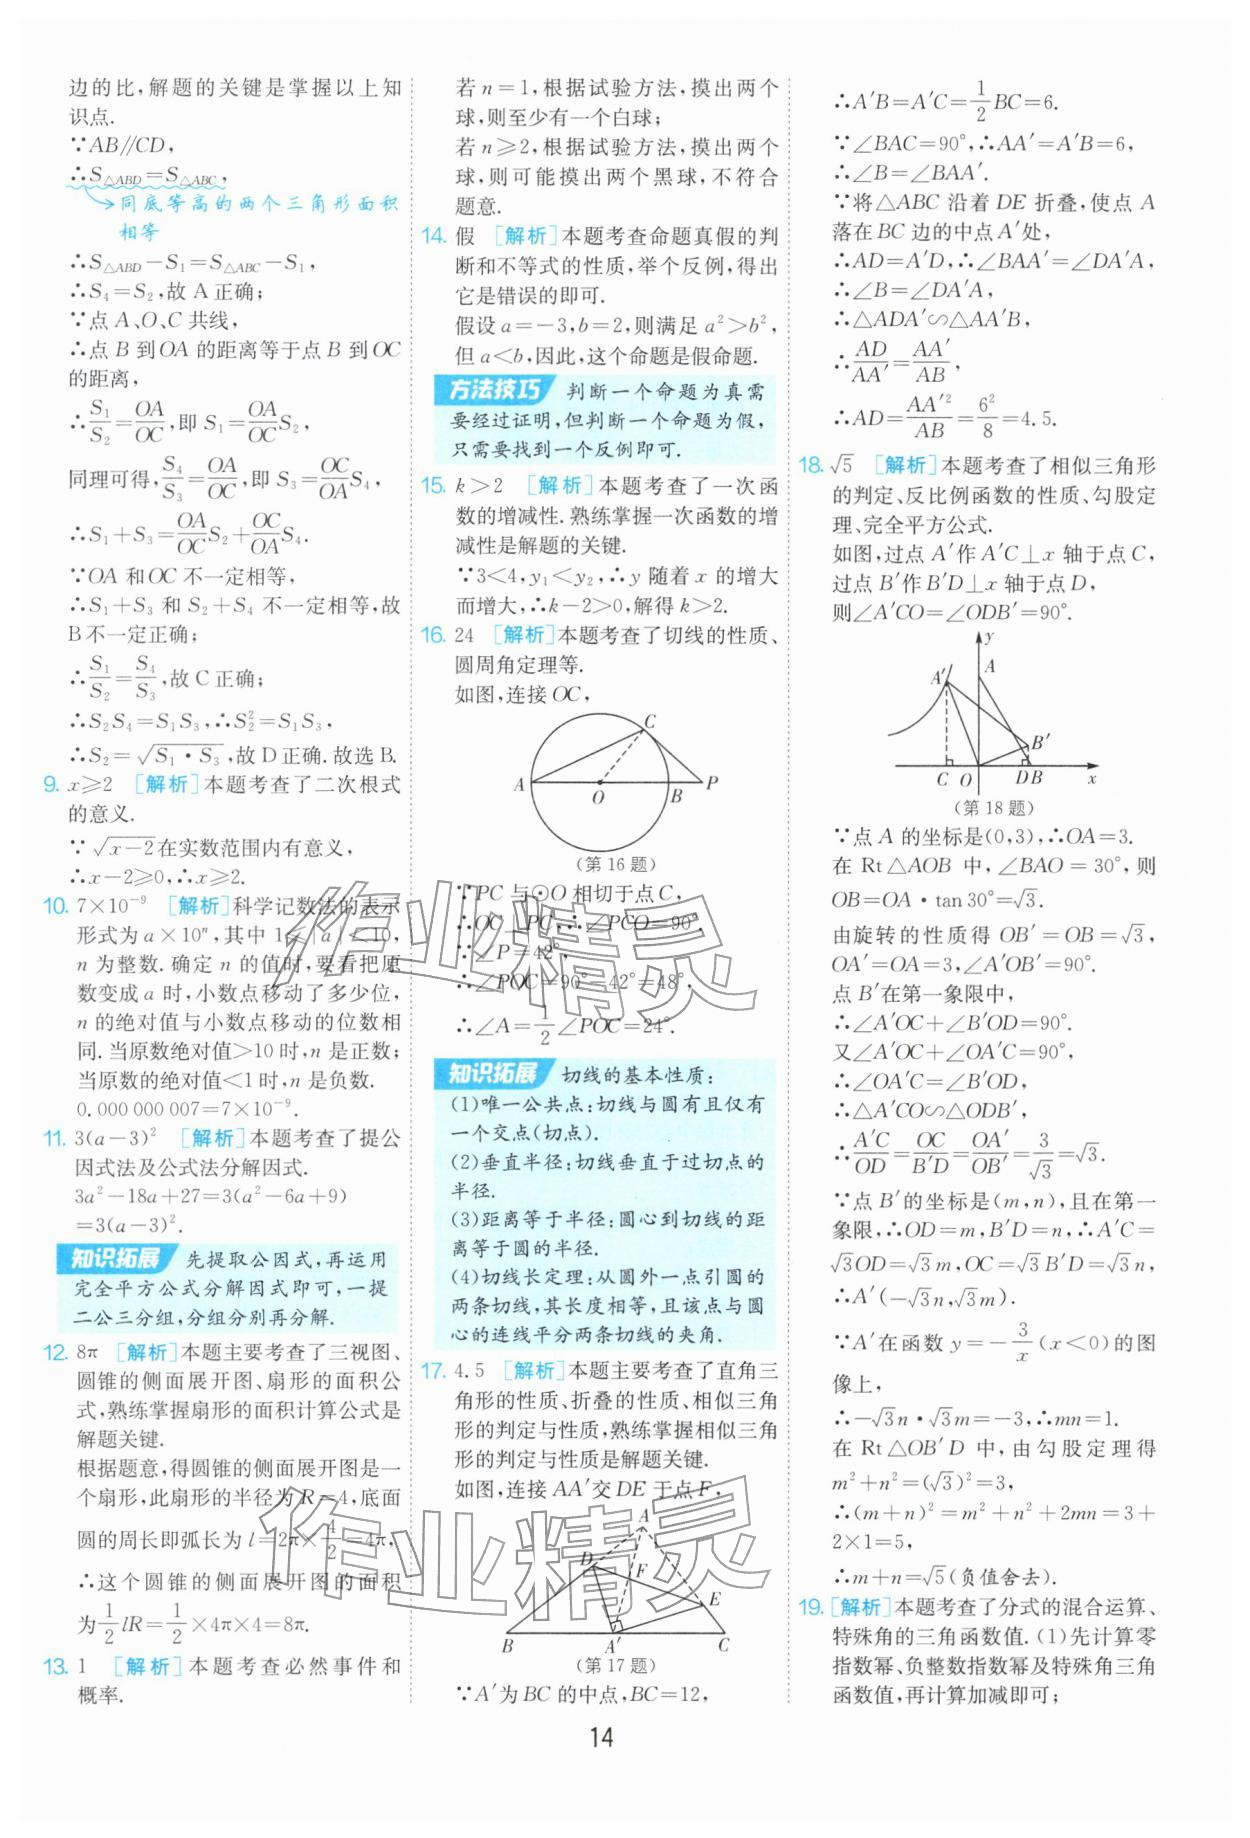 边的比,解题的关键是掌握以上知
识点.
∵AB∥CD,
∴S△ABD=S△ABC,
同底等高的两个三角形面积
相等
∴S△ABD－S₁=S△ABC－S₁,
∴S₄=S₂,故 A 正确;
∵点 A、O、C 共线,
∴点 B 到 OA 的距离等于点 B 到 OC
的距离,
∴S₁/S₂=OA/OC,即 S₁=OA/OC S₂,
同理可得,S₄/S₃=OA/OC,即 S₃=OC/OA S₄,
∴S₁+S₃=OA/OC S₂+OC/OA S₄.
∵OA 和 OC 不一定相等,
∴S₁+S₃ 和 S₂+S₄ 不一定相等,故
B 不一定正确;
∴S₁/S₂=S₄/S₃,故 C 正确;
∴S₂S₄=S₁S₃,∴S₂²=S₁S₃,
∴S₂=√(S₁·S₃),故 D 正确.故选 B.
9. x≥2 [解析]本题考查了二次根式
的意义.
∵√(x－2)在实数范围内有意义,
∴x－2≥0,∴x≥2.
10. 7×10⁻⁹ [解析]科学记数法的表示
形式为 a×10ⁿ,其中 1≤|a|<10,
n 为整数.确定 n 的值时,要看把原
数变成 a 时,小数点移动了多少位,
n 的绝对值与小数点移动的位数相
同.当原数绝对值>10 时,n 是正数;
当原数的绝对值<1 时,n 是负数.
0.000 000 007=7×10⁻⁹.
11. 3(a－3)² [解析]本题考查了提公
因式法及公式法分解因式.
3a²－18a+27=3(a²－6a+9)
=3(a－3)².
知识拓展 先提取公因式,再运用
完全平方公式分解因式即可,一提
二公三分组,分组分别再分解.
12. 8π [解析]本题主要考查了三视图、
圆锥的侧面展开图、扇形的面积公
式,熟练掌握扇形的面积计算公式是
解题关键.
根据题意,得圆锥的侧面展开图是一
个扇形,此扇形的半径为 R=4,底面
圆的周长即弧长为 l=2π×4/2=4π,
∴这个圆锥的侧面展开图的面积
为1/2 lR=1/2×4π×4=8π.
13. 1 [解析]本题考查必然事件和
概率.
若 n=1,根据试验方法,摸出两个
球,则至少有一个白球;
若 n≥2,根据试验方法,摸出两个
球,则可能摸出两个黑球,不符合
题意.
14. 假 [解析]本题考查命题真假的判
断和不等式的性质,举个反例,得出
它是错误的即可.
假设 a=－3,b=2,则满足 a²>b²,
但 a<b,因此,这个命题是假命题.
方法技巧 判断一个命题为真需
要经过证明,但判断一个命题为假,
只需要找到一个反例即可.
15. k>2 [解析]本题考查了一次函
数的增减性.熟练掌握一次函数的增
减性是解题的关键.
∵3<4,y₁<y₂,∴y 随着 x 的增大
而增大,∴k－2>0,解得 k>2.
16. 24 [解析]本题考查了切线的性质、
圆周角定理等.
如图,连接 OC,
C
A
O
B
P
(第 16 题)
∵PC 与⊙O 相切于点 C,
∴OC⊥PC,∴∠PCO=90°.
∵∠P=42°,
∴∠POC=90°－42°=48°,
∴∠A=1/2∠POC=24°.
知识拓展 切线的基本性质:
(1)唯一公共点:切线与圆有且仅有
一个交点(切点).
(2)垂直半径:切线垂直于过切点的
半径.
(3)距离等于半径:圆心到切线的距
离等于圆的半径.
(4)切线长定理:从圆外一点引圆的
两条切线,其长度相等,且该点与圆
心的连线平分两条切线的夹角.
17. 4.5 [解析]本题主要考查了直角三
角形的性质、折叠的性质、相似三角
形的判定与性质,熟练掌握相似三角
形的判定与性质是解题关键.
如图,连接 AA′交 DE 于点 F,
A
D
F
E
B
A′
C
(第 17 题)
∵A′为 BC 的中点,BC=12,
∴A′B=A′C=1/2 BC=6.
∵∠BAC=90°,∴AA′=A′B=6,
∴∠B=∠BAA′.
∵将△ABC 沿着 DE 折叠,使点 A
落在 BC 边的中点 A′处,
∴AD=A′D,∴∠BAA′=∠DA′A,
∴∠B=∠DA′A,
∴△ADA′∽△AA′B,
∴AD/AA′=AA′/AB,
∴AD=AA′²/AB=6²/8=4.5.
18. √5 [解析]本题考查了相似三角形
的判定、反比例函数的性质、勾股定
理、完全平方公式.
如图,过点 A′作 A′C⊥x 轴于点 C,
过点 B′作 B′D⊥x 轴于点 D,
则∠A′CO=∠ODB′=90°.
y
A′
A
B′
C
O
D
B
x
(第 18 题)
∵点 A 的坐标是(0,3),∴OA=3.
在 Rt△AOB 中,∠BAO=30°,则
OB=OA·tan30°=√3.
由旋转的性质得 OB′=OB=√3,
OA′=OA=3,∠A′OB′=90°.
点 B′在第一象限中,
∴∠A′OC+∠B′OD=90°.
又∠A′OC+∠OA′C=90°,
∴∠OA′C=∠B′OD,
∴△A′CO∽△ODB′,
∴A′C/OD=OC/B′D=OA′/OB′=3/√3=√3.
∵点 B′的坐标是(m,n),且在第一
象限,∴OD=m,B′D=n,∴A′C=
√3OD=√3m,OC=√3B′D=√3n,
∴A′(－√3n,√3m).
∵A′在函数 y=－3/x(x<0)的图
像上,
∴－√3n·√3m=－3,∴mn=1.
在 Rt△OB′D 中,由勾股定理得
m²+n²=(√3)²=3,
∴(m+n)²=m²+n²+2mn=3+
2×1=5,
∴m+n=√5(负值舍去).
19. [解析]本题考查了分式的混合运算、
特殊角的三角函数值.(1)先计算零
指数幂、负整数指数幂及特殊角三角
函数值,再计算加减即可;
14
作业精灵
作业精灵